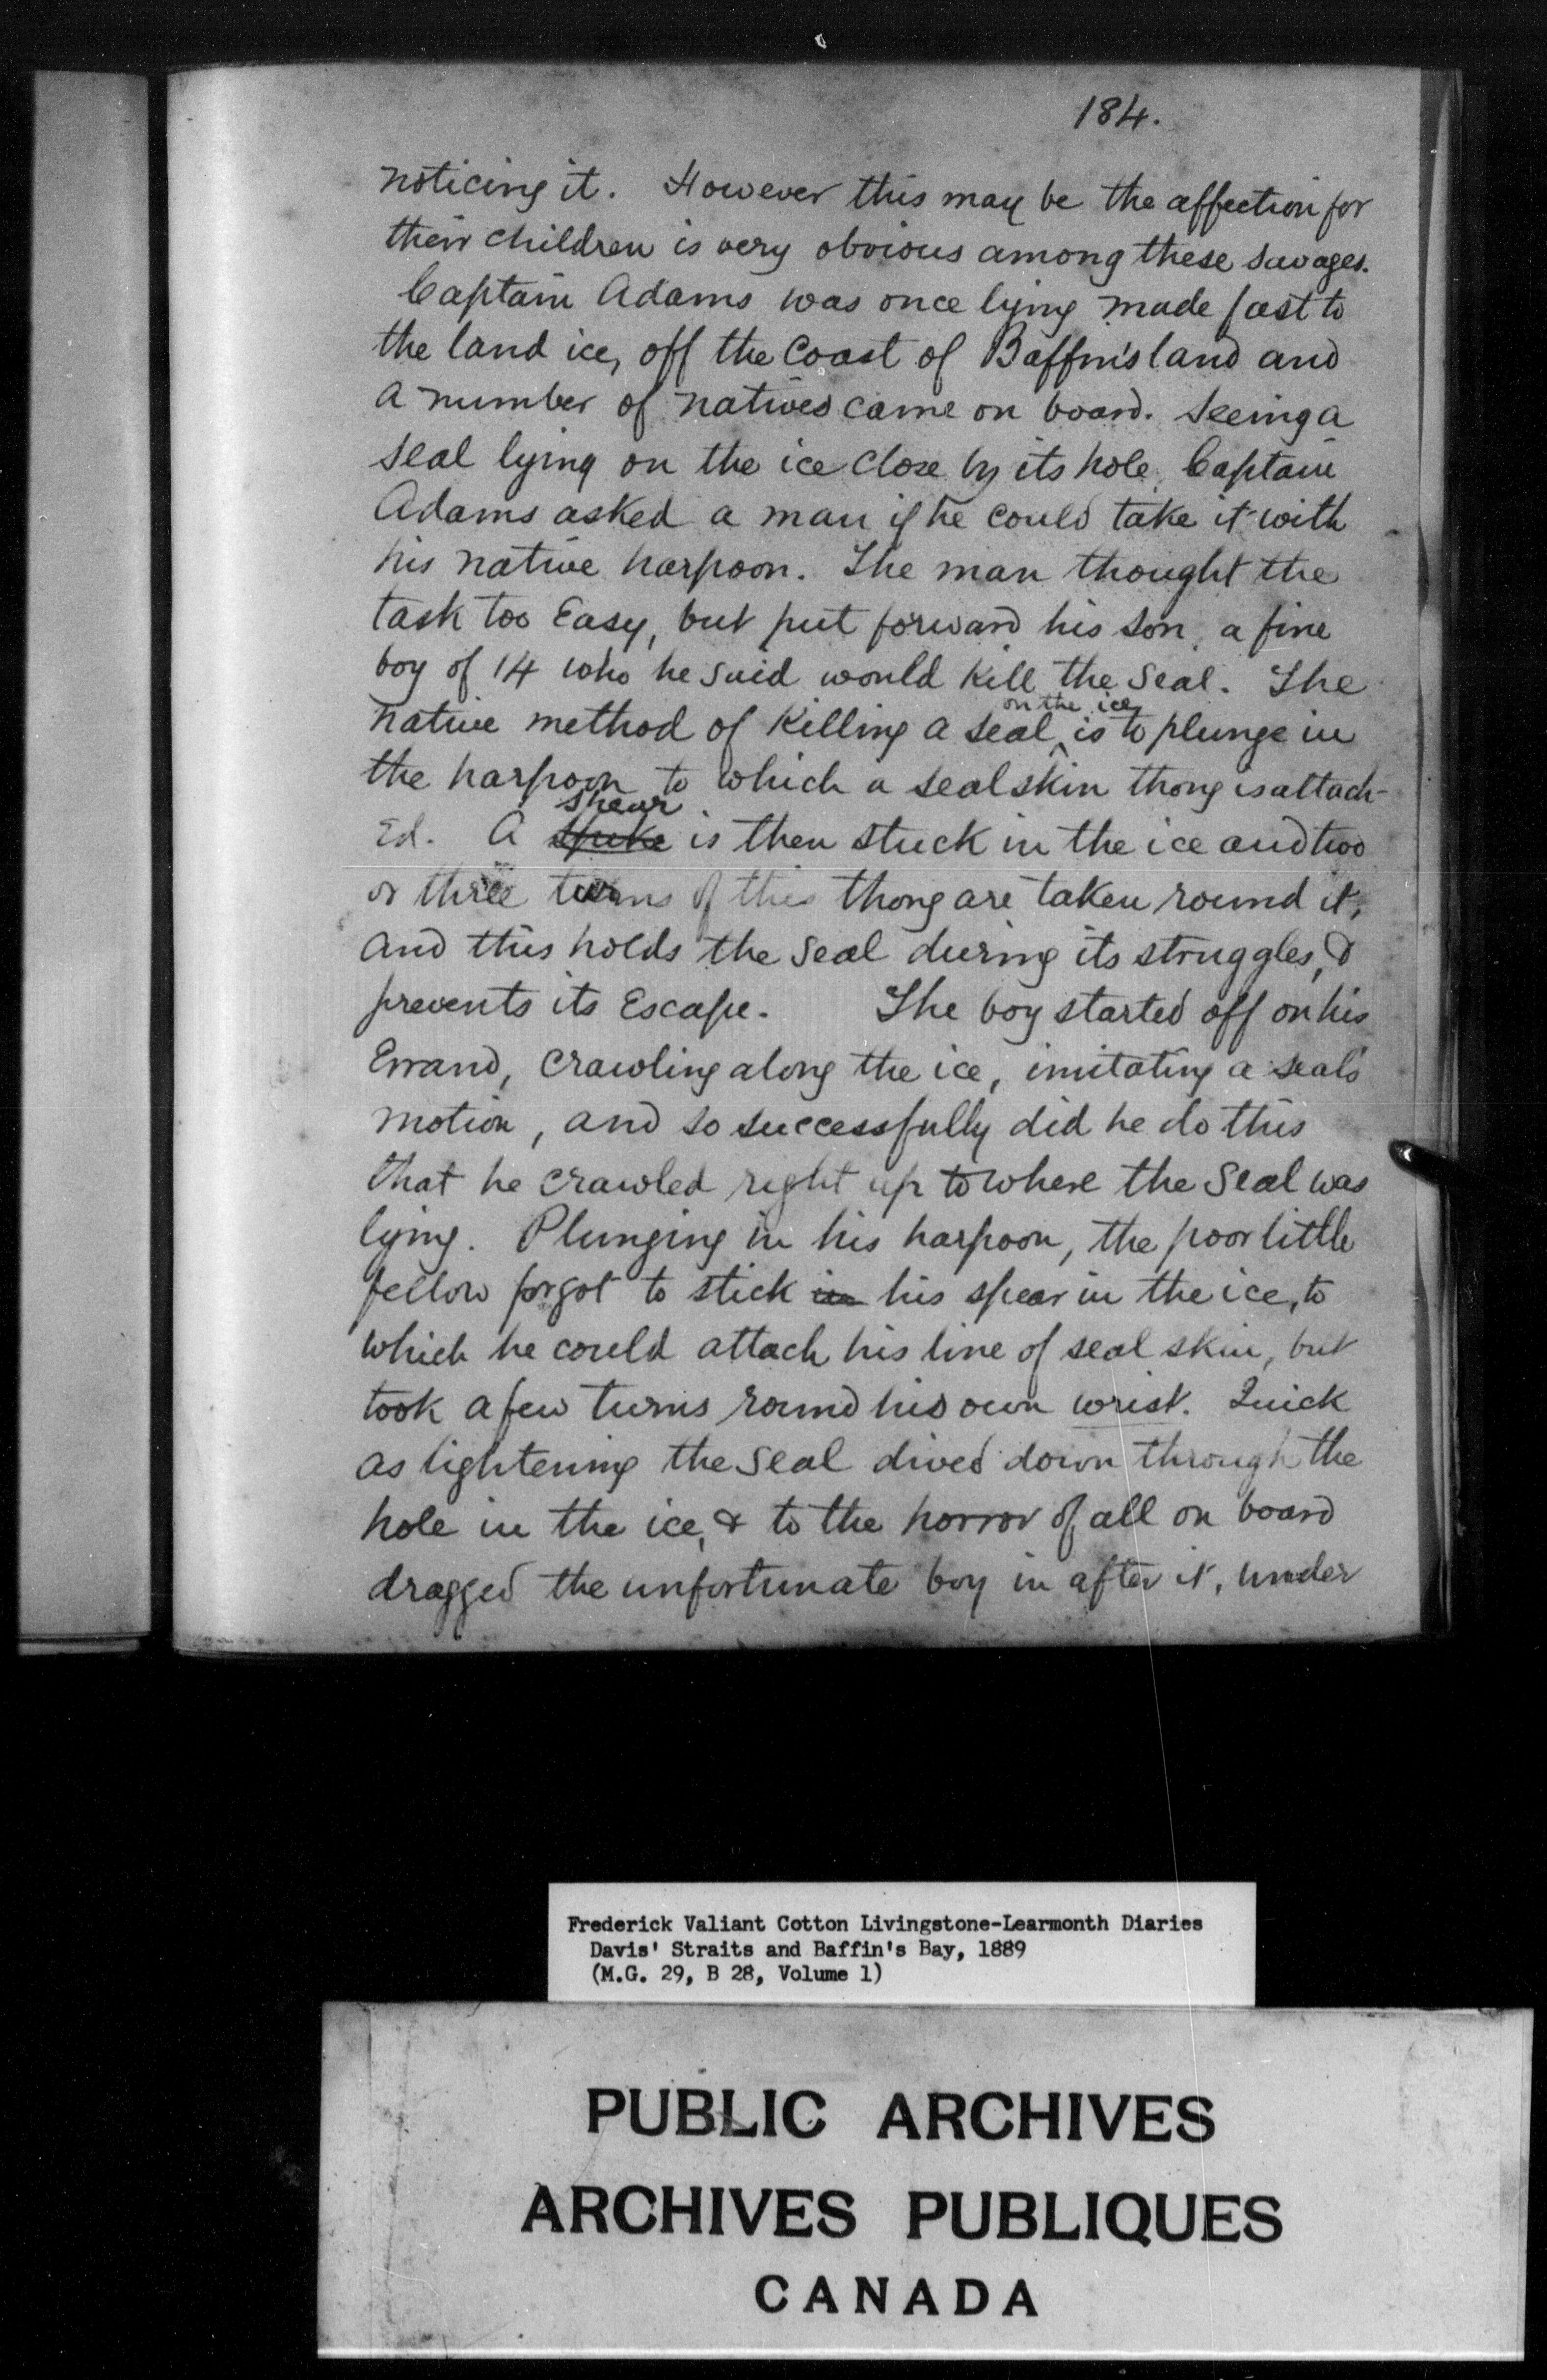 184.
noticing it. However this may be the affection for
their children is very obvious among these savages.
Captain Adams was once lying made fast to
the land ice, off the Coast of Baffin's land and
a number of natives came on board. Seeing a
seal lying on the ice close by its hole, Captain
Adams asked a man if he could take it with
his native harpoon. The man thought the
task too Easy, but put forward his son, a fine
boy of 14 who he said would kill the seal. The
on the ice
native method of Killing a seal ^ is to plunge in
the harpoon to which a sealskin thong is attach-
spear
Ed. A spike is then stuck in the ice and two
or three turns of this thong are taken round it,
and this holds the seal during its struggles, &
prevents its Escape. The boy started off on his
Errand, crawling along the ice, imitating a seal's
motion, and so successfully did he do this
that he crawled right up to where the Seal was
lying. Plunging in his harpoon, the poor little
fellow forgot to stick in his spear in the ice, to
which he could attach his line of seal skin, but
took a few turns round his own wrist. Quick
as lightening the seal dived down through the
hole in the ice, & to the horror of all on board
dragged the unfortunate boy in after it, under
Frederick Valiant Cotton Livingstone-Learmonth Diaries
Davis' Straits and Baffin's Bay, 1889
(M.G. 29, B 28, Volume 1)
PUBLIC ARCHIVES
ARCHIVES PUBLIQUES
CANADA